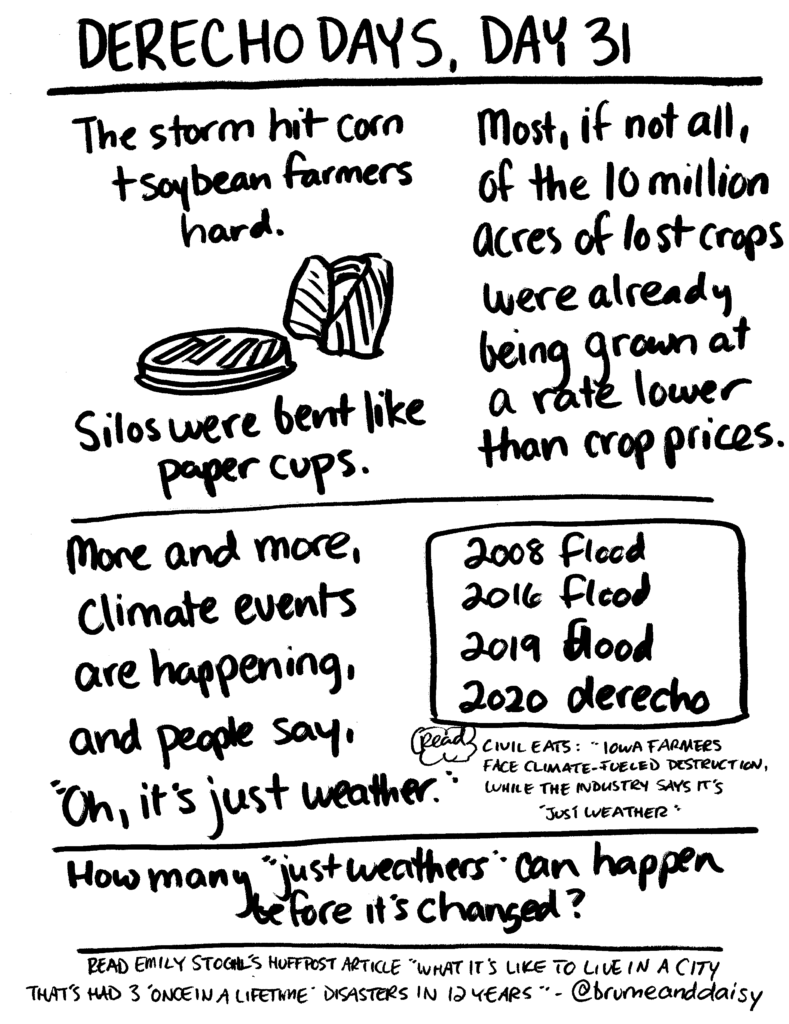 DERECHO DAYS, DAY 31
The storm hit corn
+ soybean farmers
hard.
Silos were bent like
paper cups.
Most, if not all,
of the 10 million
acres of lost crops
were already
being grown at
a rate lower
than crop prices.
More and more,
climate events
are happening,
and people say,
"Oh, it's just weather."
2008 flood
2016 flood
2019 flood
2020 derecho
Read
CIVIL EATS: "IOWA FARMERS
FACE CLIMATE-FUELED DESTRUCTION,
WHILE THE INDUSTRY SAYS IT'S
"JUST WEATHER"
How many "just weathers" can happen
before it's changed?
READ EMILY STOCHL'S HUFFPOST ARTICLE "WHAT IT'S LIKE TO LIVE IN A CITY
THAT'S HAD 3 "ONCE IN A LIFETIME" DISASTERS IN 12 YEARS" - @brumeanddaisy